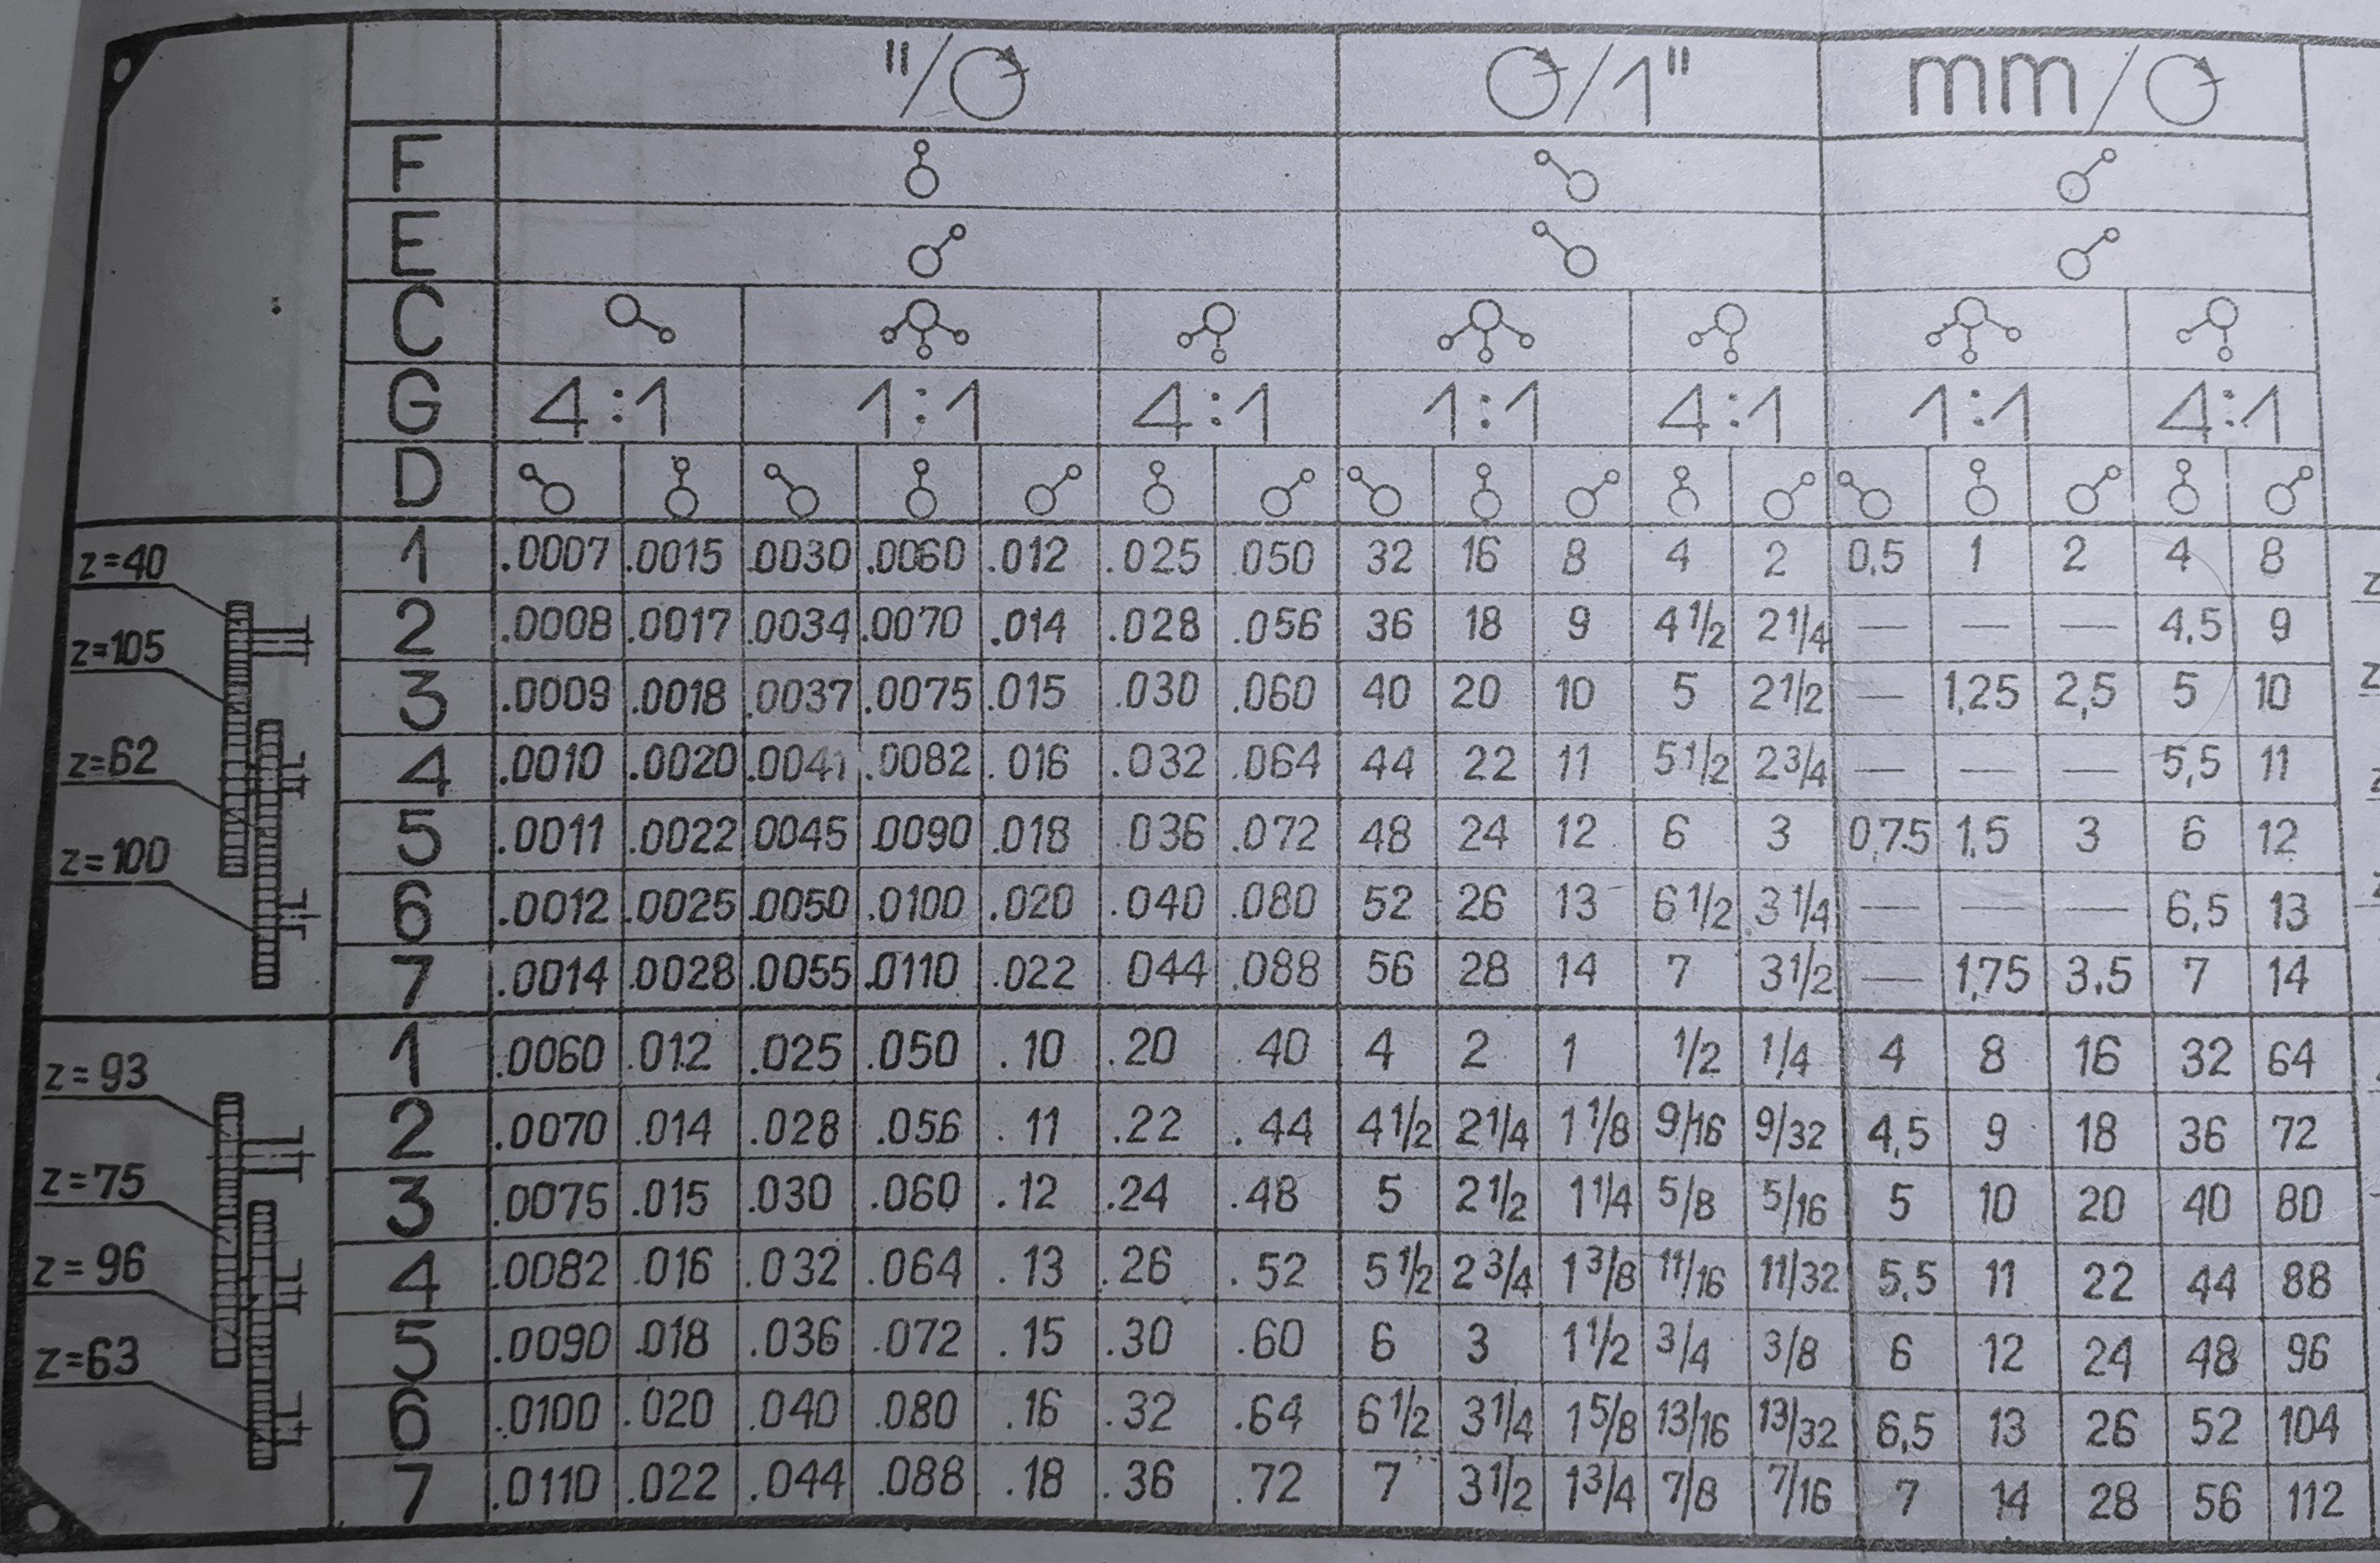 "/ /1" mm/
F
E
C
G 4:1 1:1 4:1 1:1 4:1 1:1 4:1
D
z=40
z=105
z=62
z=100
1 .0007 .0015 .0030 .0060 .012 .025 .050 32 16 8 4 2 0,5 1 2 4 8
2 .0008 .0017 .0034 .0070 .014 .028 .056 36 18 9 4 1/2 2 1/4 — — — 4,5 9
3 .0009 .0018 .0037 .0075 .015 .030 .060 40 20 10 5 2 1/2 — 1,25 2,5 5 10
4 .0010 .0020 .0041 .0082 .016 .032 .064 44 22 11 5 1/2 2 3/4 — — — 5,5 11
5 .0011 .0022 .0045 .0090 .018 .036 .072 48 24 12 6 3 0,75 1,5 3 6 12
6 .0012 .0025 .0050 .0100 .020 .040 .080 52 26 13 6 1/2 3 1/4 — — — 6,5 13
7 .0014 .0028 .0055 .0110 .022 .044 .088 56 28 14 7 3 1/2 — 1,75 3,5 7 14
z=93
z=75
z=96
z=63
1 .0060 .012 .025 .050 .10 .20 .40 4 2 1 1/2 1/4 4 8 16 32 64
2 .0070 .014 .028 .056 .11 .22 .44 4 1/2 2 1/4 1 1/8 9/16 9/32 4,5 9 18 36 72
3 .0075 .015 .030 .060 .12 .24 .48 5 2 1/2 1 1/4 5/8 5/16 5 10 20 40 80
4 .0082 .016 .032 .064 .13 .26 .52 5 1/2 2 3/4 1 3/8 11/16 11/32 5,5 11 22 44 88
5 .0090 .018 .036 .072 .15 .30 .60 6 3 1 1/2 3/4 3/8 6 12 24 48 96
6 .0100 .020 .040 .080 .16 .32 .64 6 1/2 3 1/4 1 5/8 13/16 13/32 6,5 13 26 52 104
7 .0110 .022 .044 .088 .18 .36 .72 7 3 1/2 1 3/4 7/8 7/16 7 14 28 56 112